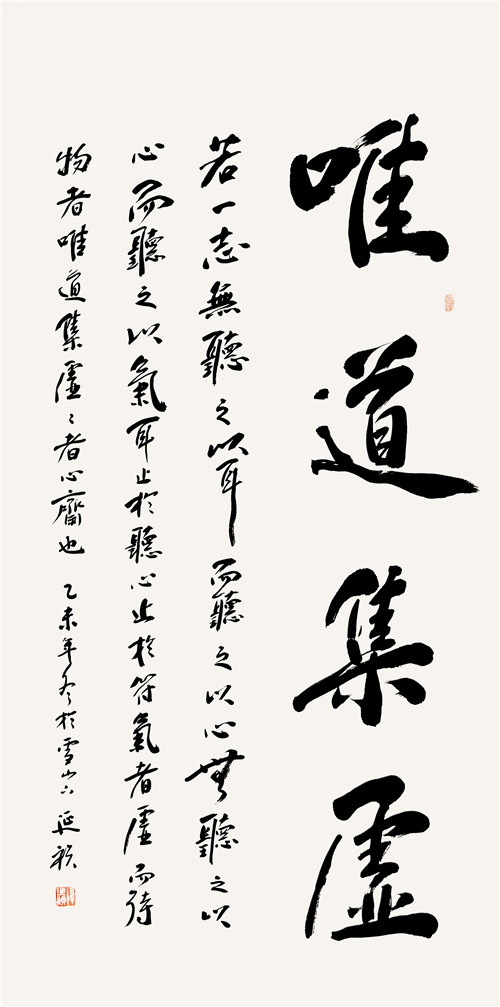 唯道集虛
若一志無聽之以耳而聽之以心無聽之以
心而聽之以氣耳止於聽心止於符氣者虛而待
物者唯道集虛々者心齋也 乙未年冬於雪山下 延